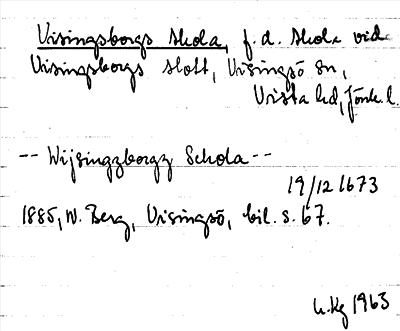 Visingsborgs skola, f.d. skola vid
Visingsborgs slott, Visingsö sn,
Vista hd, Jönk. l.
-- Wijsingzborgz Schola --
19/12 1673
1885, W. Berg, Visingsö, bil. s. 67.
1963